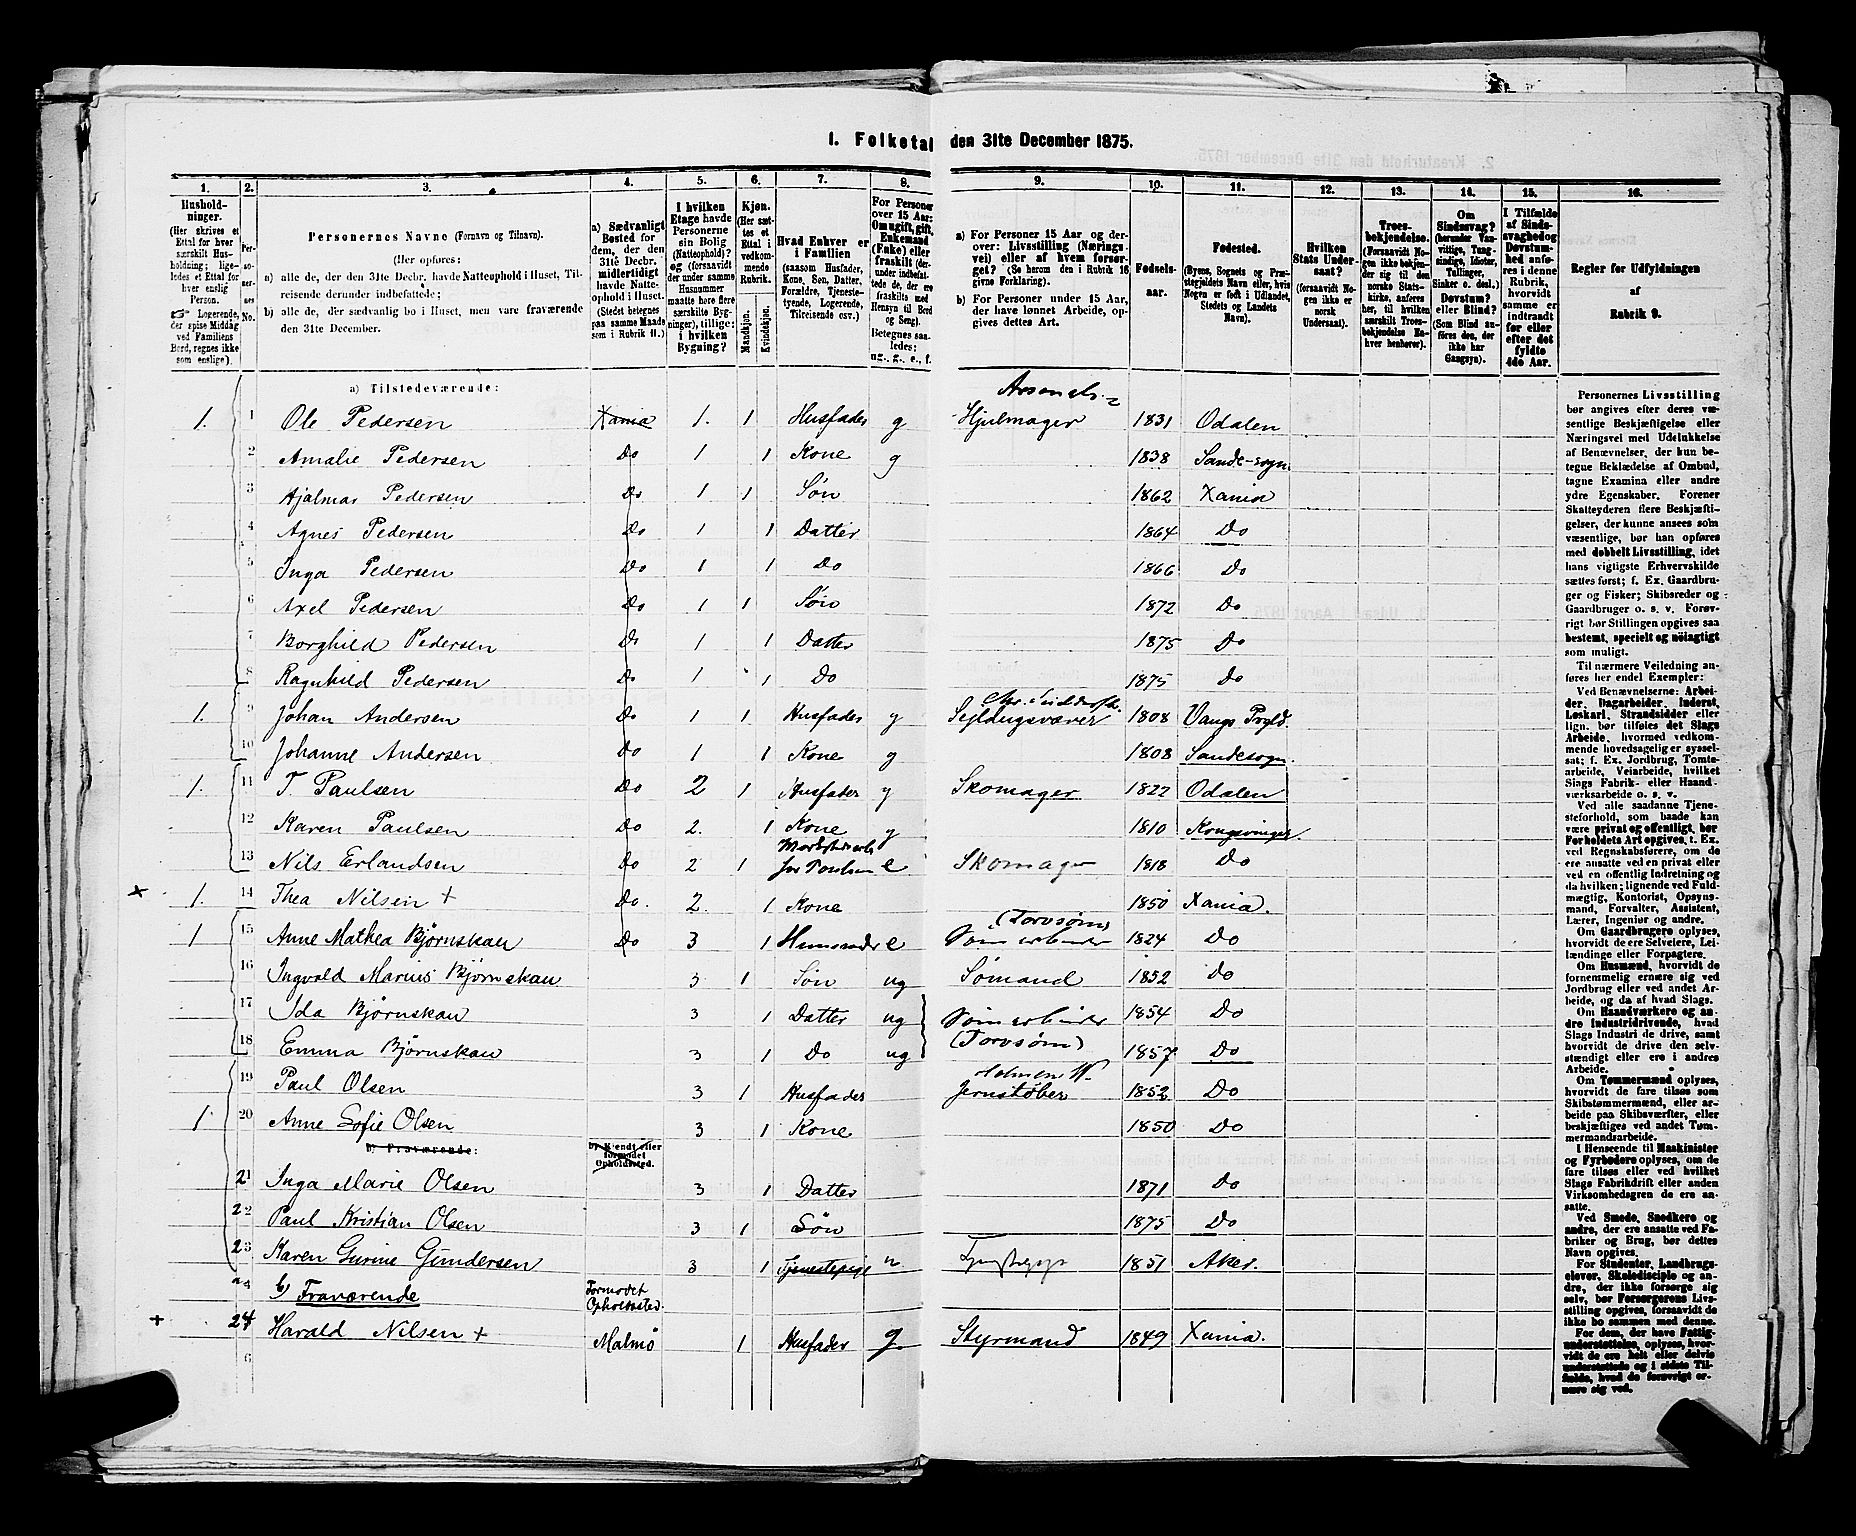 1. Folketal den 31te December 1875.
1. 2. 3. 4. 5. 6. 7. 8. 9. 10. 11. 12. 13. 14. 15. 16.
Husholdninger.
(Her skrives et
Ettal for hver
særskilt Husholdning;
ligeledes et Ettal for
hver enslig
Person.
Logerende,
der spise Middag
ved Familiens
Bord, regnes ikke
som enslige).
Personernes No.
Personernes Navne (Fornavn og Tilnavn).
(Her opføres:
a) alle de, der den 31te Decbr. havde Natteophold i Huset, Tilreisende derunder indbefattede;
b) alle de, der sædvanlig bo i Huset, men vare fraværende den 31te December.
a) Sædvanligt
Bosted for
dem, der den
31te Decbr.
midlertidigt
havde Natteophold
i Huset.
(Stedet betegnes
paa samme Maade
som i Rubrik 11.)
I hvilken
Etage havde
Personerne
sin Bolig
(Natteophold)?
og (forsaavidt
der under samme
Husnummer
maatte høre flere
særskilte Bygninger),
tillige:
i hvilken
Bygning?
Kjøn.
(Her sættes
et
Ettal i
vedkommende
Rubrik.)
Mandkjøn.
Kvindekjøn.
Hvad Enhver er
i Familien
(saasom Husfader,
Kone, Søn, Datter,
Forældre, Tjenestetyende,
Logerende,
Tilreisende osv.)
For Personer
over 15 Aar:
Om ugift, gift,
Enkemand
(Enke) eller
fraskilt (derunder
indbefattede
de, der ere
fraskilte med
Hensyn til Bord
og Seng).
Betegnes saaledes:
ug., g., e., f.
a) For Personer 15 Aar og derover: Livsstilling (Næringsvei) eller af hvem forsørget? (Se herom den i Rubrik 16 givne Forklaring).
b) For Personer under 15 Aar, der have lønnet Arbeide, opgives dettes Art.
Fødselsaar.
Fødested.
(Byens, Sognets og Præstegjeldets Navn eller, hvis Nogen er født i Udlandet, Stedets og Landets Navn).
Hvilken
Stats Undersaat?
(forsaavidt Nogen
ikke er
norsk
Undersaat).
Troesbekjendelse.
(Forsaavidt Nogen
ikke bekjender
sig til den
norske Statskirke,
anføres
her, til hvilken
særskilt Troesbekjendelse
Enhver
henhører).
Om
Sindssvag?
(herunder Vanvittige,
Tungsindige,
Idioter,
Tullinger,
Sinker o. desl.)
Døvstum?
eller Blind?
(Som Blind anføres
den, der
ikke har
Gangsyn).
I Tilfælde
af Sindssvaghed
og
Døvstumhed
anføres
i denne
Rubrik,
hvorvidt
samme er
indtraadt
før eller
efter det
fyldte
4de Aar.
Regler for Udfyldningen
af
Rubrik 9.
a) Tilstedeværende:
Arsenals-
1. 1 Ole Pedersen Xania 1. 1 Husfader g Hjulmager 1831 Odalen
2 Amalie Pedersen Do 1 1 Kone g 1838 Sande-sogn
3 Hjalmar Pedersen Do 1 1 Søn 1862 Xania
4 Agnes Pedersen Do 1 1 Datter 1864 Do
5 Inga Pedersen Do 1 1 Do 1866 Do
6 Axel Pedersen Do 1 1 Søn 1872 Do
7 Borghild Pedersen Do 1 1 Datter 1875 Do
8 Ragnhild Pedersen Do 1 1 Do 1875 Do
1. 9 Johan Andersen Do 1 1 Husfader g Sejldugsvæver 1808 Vangs Pgld.
10 Johanne Andersen Do 1 1 Kone g 1808 Sandesogn.
1. 11 T. Paulsen Do 2 1 Husfader g Skomager 1822 Odalen
12 Karen Paulsen Do 2. 1 Kone g 1810 Kongsvinger.
13 Nils Erlandsen Do 2 1 e Skomager 1818 Do
x 1. 14 Thea Nilsen + Do. 2. 1 Kone 1850 Xania.
(Torvsøm)
1 15 Anne Mathea Bjørnskau Do 3 1 e 1824 Do
16 Ingvald Marius Bjørnskau 3 1 Søn ug Sømand 1852 Do
17 Ida Bjørnskau 3 1 Datter ug 1854 Do
18 Emma Bjørnskau 3 1 Do ug (Torvsøm) 1857 Do
19 Paul Olsen 3 1 Husfader Jernstøber 1852 Do
1 20 Anne Sofie Olsen 3 1 Kone 1850 Do
b) Fraværende: b) Kjendt eller formodet Opholdsted.
21 Inga Marie Olsen 3 1 Datter 1871 Do
22 Paul Kristian Olsen 3 1 Søn 1875 Do
23 Karen Gurine Gundersen 3 1 Tjenestepige " 1851 Aker.
b) Fraværende Formodet Opholdssted.
+ 24 Harald Nilsen + Malmø 1 Husfader g. Styrmand 1849 Xania.
6
Personernes Livsstilling
bør angives efter deres væsentlige
Beskjæftigelse eller
Næringsvei med Udelukkelse
af Benævnelser, der kun betegne
Beklædelse af Ombud,
tagne Examina eller andre
ydre Egenskaber. Forener
Skatteyderen flere Beskjæftigelser,
der kunne ansees som
væsentlige, bør han opføres
med dobbelt Livsstilling, idet
hans vigtigste Erhvervskilde
sættes først; f. Ex. Gaardbruger
og Fisker; Skibsreder og
Gaardbruger o. s. v. Forøvrigt
bør Stillingen opgives saa
bestemt, specielt og nöiagtigt
som muligt.
Til nærmere Veiledning anføres
her endel Exempler:
Ved Benævnelserne: Arbeider,
Dagarbeider, Inderst,
Løskarl, Strandsidder eller
lign. bør tilføies det Slags
Arbeide, hvormed vedkommende
hovedsagelig er sysselsat;
f. Ex. Jordbrug, Tomtearbeide,
Veiarbeide, hvilket
Slags Fabrik- eller Haandværksarbeide
o. s. v.
Ved alle saadanne Tjenesteforhold,
som baade kan
være privat og offentligt, bør
Forholdets Art opgives, t. Ex.
ved Regnskabsførere, om de
ere ansatte ved en privat eller
ved en offentlig Indretning og
da hvilken; lignende ved Fuldmægtig,
Kontorist, Opsynsmand,
Forvalter, Assistent,
Lærer, Ingeniør og andre.
Om Gaardbrugere oplyses,
hvorvidt de ere Selveiere, Leilændinge
eller Forpagtere.
Om Husmænd, hvorvidt de
fornemmelig ernære sig ved
Jordbrug eller ved andet Arbeide,
og da af hvad Slags.
Om Haandværkere og andre
Industridrivende, hvad
Slags Industri de drive, samt
hvorvidt de drive den selvstændigt
eller ere i andres
Arbeide.
Om Tømmermænd oplyses,
hvorvidt de fare tilsøs som
Skibstømmermænd, eller arbeide
paa Skibsværfter, eller
beskjæftiges ved andet Tømmermandsarbeide.
I Henseende til Maskinister
og Fyrbødere oplyses, om de
fare tilsøs eller ved hvilket
Slags Fabrikdrift eller anden
Virksomhedsgren de ere ansatte.
Ved Smede, Snedkere og
andre, der ere ansatte ved Fabriker
og Brug, bør dettes
Navn opgives.
For Studenter, Landbrugselever,
Skoledisciple og andre,
der ikke forsørge sig
selv, bør Forsørgerens Livsstilling
opgives, forsaavidt de
ikke bo sammen med denne.
For dem, der have Fattigunderstøttelse,
oplyses, hvorvidt
de ere helt eller delvis
understøttede og i sidste Tilfælde,
hvad de forøvrigt ernære
sig ved.